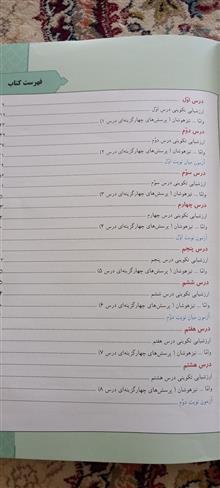 فهرست کتاب
درس اوّل
ارزشیابی تکوینی درس اوّل
وامّا ... تیزهوشان ( پرسش‌های چهارگزینه‌ای درس ۱)
درس دوّم
ارزشیابی تکوینی درس دوّم
وامّا ... تیزهوشان ( پرسش‌های چهارگزینه‌ای درس ۲)
آزمون میان نوبت اوّل
درس سوّم
ارزشیابی تکوینی درس سوّم
وامّا ... تیزهوشان ( پرسش‌های چهارگزینه‌ای درس ۳)
درس چهارم
ارزشیابی تکوینی درس چهارم
وامّا ... تیزهوشان ( پرسش‌های چهارگزینه‌ای درس ۴)
آزمون نوبت اوّل
درس پنجم
ارزشیابی تکوینی درس پنجم
وامّا ... تیزهوشان ( پرسش‌های چهارگزینه‌ای درس ۵)
درس ششم
ارزشیابی تکوینی درس ششم
وامّا ... تیزهوشان ( پرسش‌های چهارگزینه‌ای درس ۶)
آزمون میان نوبت دوّم
درس هفتم
ارزشیابی تکوینی درس هفتم
وامّا ... تیزهوشان ( پرسش‌های چهارگزینه‌ای درس ۷)
درس هشتم
ارزشیابی تکوینی درس هشتم
وامّا ... تیزهوشان ( پرسش‌های چهارگزینه‌ای درس ۸)
آزمون نوبت دوّم